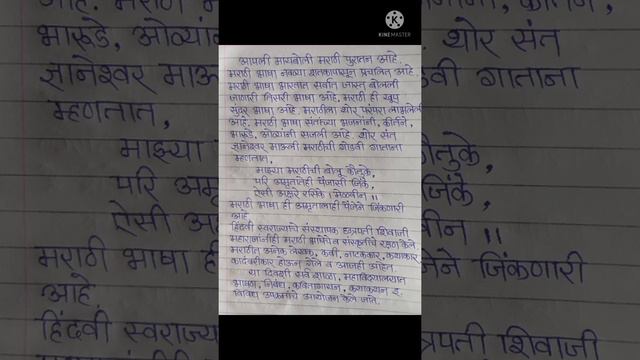 आपली मायबोली मराठी पुरातन आहे.
मराठी भाषा नवव्या शतकापासून प्रचलित आहे
मराठी भाषा भारतात सर्वात जास्त बोलली
जाणारी तिसरी भाषा आहे. मराठी ही खूप
सुंदर भाषा आहे. मराठीला थोर परंपरा लाभलेली
आहे. मराठी भाषा संतांच्या अभंगांनी, कीर्तने,
भारुडे, ओव्यांनी सजली आहे. थोर संत
ज्ञानेश्वर माऊली मराठीची गोडवी गाताना
म्हणतात,
माझ्या मराठीची बोलू कौतुके,
परि अमृतातेही पैजासी जिंके,
ऐसी अक्षरे रसिके । मेळवीन ॥
मराठी भाषा ही अमृतालाही पैजेने जिंकणारी
आहे.
हिंदवी स्वराज्याचे संस्थापक छत्रपती शिवाजी
महाराजांनीही मराठी भाषेचे व संस्कृतीचे रक्षण केले
मराठीत अनेक लेखक, कवी, नाटककार, कथाकार
कादंबरीकार होऊन गेले व आजही आहेत.
या दिवशी सर्व शाळा, महाविद्यालयात
भाषण, निबंध, कवितागायन, कथाकथन इ.
विविध उपक्रमांचे आयोजन केले जाते.
KINEMASTER